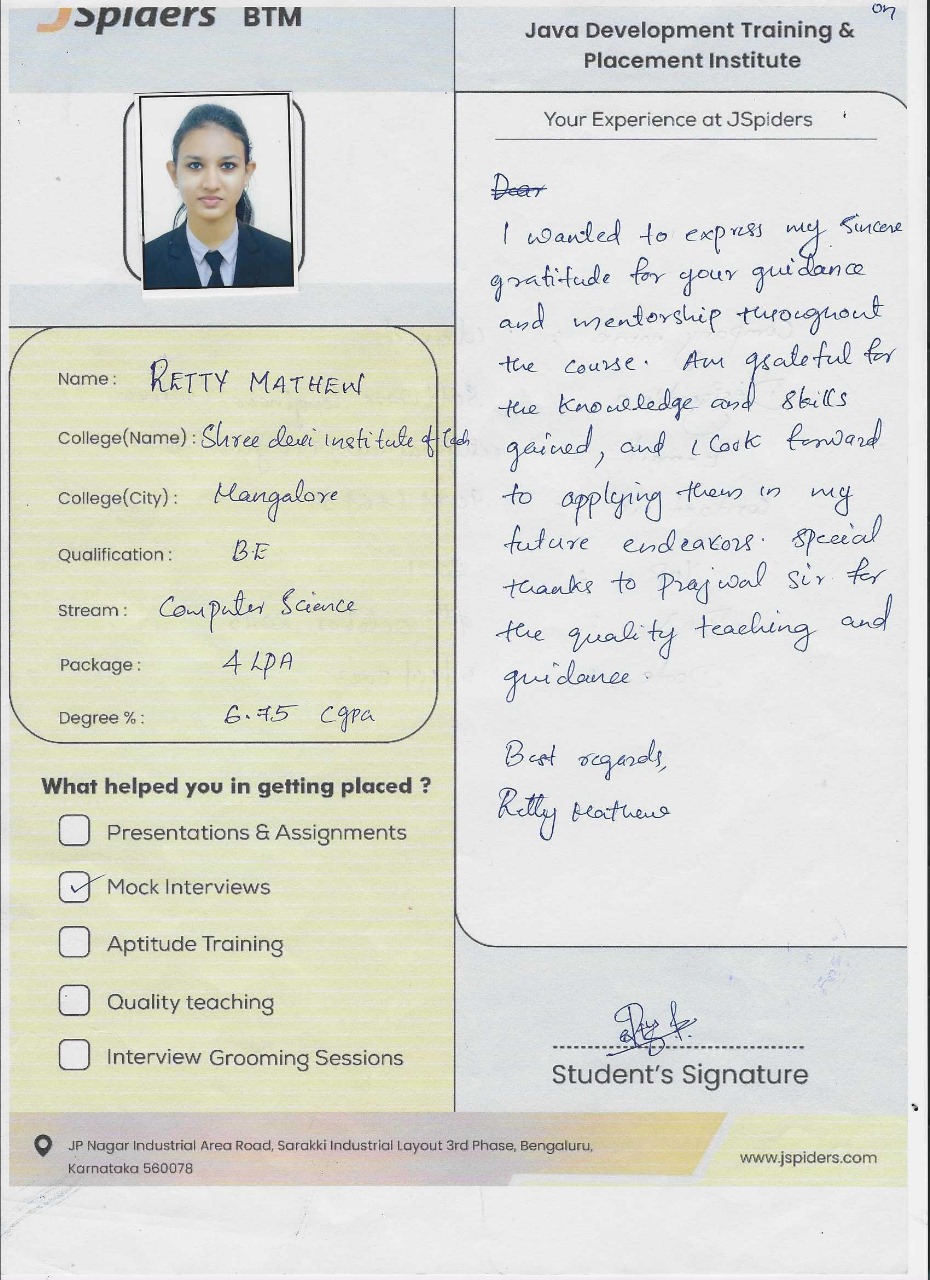 JSpiders BTM
on
Java Development Training &
Placement Institute
Your Experience at JSpiders
Dear
I wanted to express my sincere
gratitude for your guidance
and mentorship throughout
the course. Am grateful for
the knowledge and skills
gained, and I look forward
to applying them in my
future endeavors. special
thanks to Prajwal Sir for
the quality teaching and
guidance.
Best regards,
Retty Mathew
Name : RETTY MATHEW
College(Name) : Shree devi institute of Tech
College(City) : Mangalore
Qualification : B.E
Stream : Computer Science
Package : 4 LPA
Degree % : 6.75 cgpa
What helped you in getting placed ?
Presentations & Assignments
Mock Interviews
Aptitude Training
Quality teaching
Interview Grooming Sessions
Student's Signature
JP Nagar Industrial Area Road, Sarakki Industrial Layout 3rd Phase, Bengaluru,
Karnataka 560078
www.jspiders.com